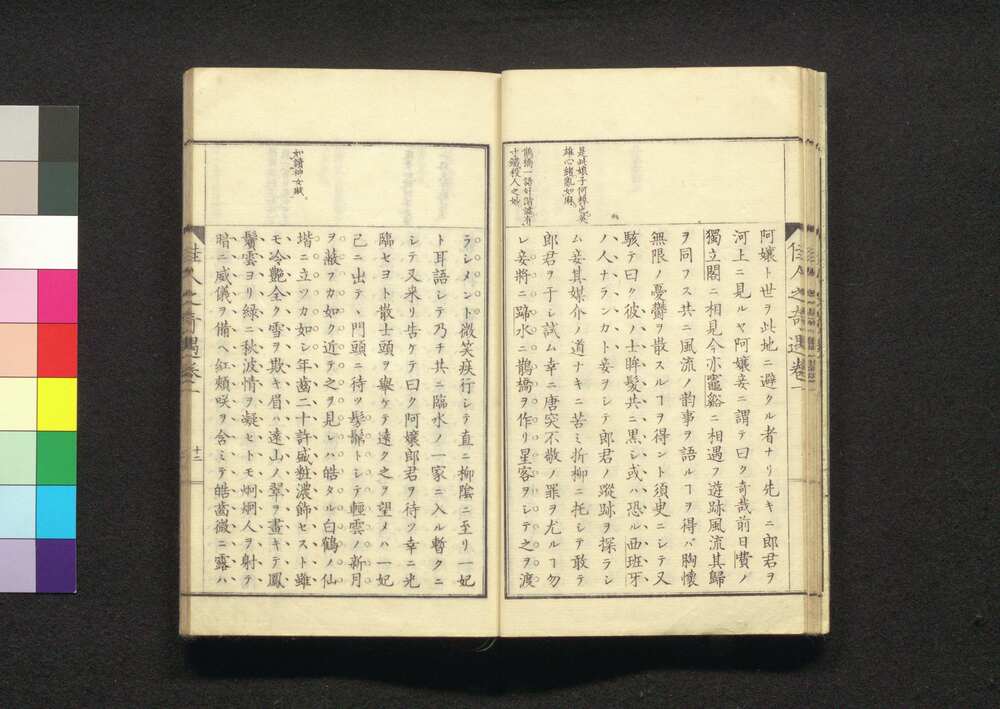 佳人之奇遇卷一
是此孃子何得丈英
雄心緒亂如麻
鵲橋一語好階誰有
十纖殺人之妙
阿孃ト世ヲ此地ニ避クル者ナリ先キニ郎君ヲ
河上ニ見ルヤ阿孃妾ニ謂テ曰ク奇哉前日費ノ
獨立閣ニ相見今亦竈谿ニ相遇フ遊跡風流其歸
ヲ同フス共ニ風流ノ韵事ヲ語ルヿヲ得バ胸懷
無限ノ憂鬱ヲ散スルヿヲ得ント須臾ニシテ又
駭テ曰ク彼ノ士眸髮共ニ黑シ或ハ恐ル西班牙
ノ人ナランカト妾ヲシテ郎君ノ蹤跡ヲ探ラシ
ム妾其媒介ノ道ナキニ苦ミ折柳ニ托シテ敢テ
郎君ヲ干シ試ム幸ニ唐突不敬ノ罪ヲ尤ルヿ勿
レ妾將ニ蹄水ニ鵲橋ヲ作リ星客ヲシテ之ヲ渡
如讀神女賦
ラシメントト微笑疾行シテ直ニ柳陰ニ至リ一妃
ト耳語シテ乃チ共ニ臨水ノ一家ニ入ル暫クニ
シテ又来リ告ケテ曰ク阿孃郎君ヲ待ツ幸ニ光
臨セヨト散士頭ヲ擧ケテ遠ク之ヲ望メハ一妃
已ニ出テ、門頭ニ待ツ髣髴トシテ輕雲ノ新月
ヲ蔽フカ如ク近テ之ヲ見レハ皓タル白鶴ノ仙
堦ニ立ツカ如シ年齒二十許盛粧濃飾セスト雖
モ冷艷全ク雪ヲ欺キ眉ハ遠山ノ翠ヲ畫キテ鳳
鬢雲ヨリ綠ニ秋波情ヲ凝ヒトモ炯炯人ヲ射テ
暗ニ威儀ヲ備ヘ紅頰咲ヲ含ミテ皓齒微ニ露ハ
佳人之奇遇卷一
十二